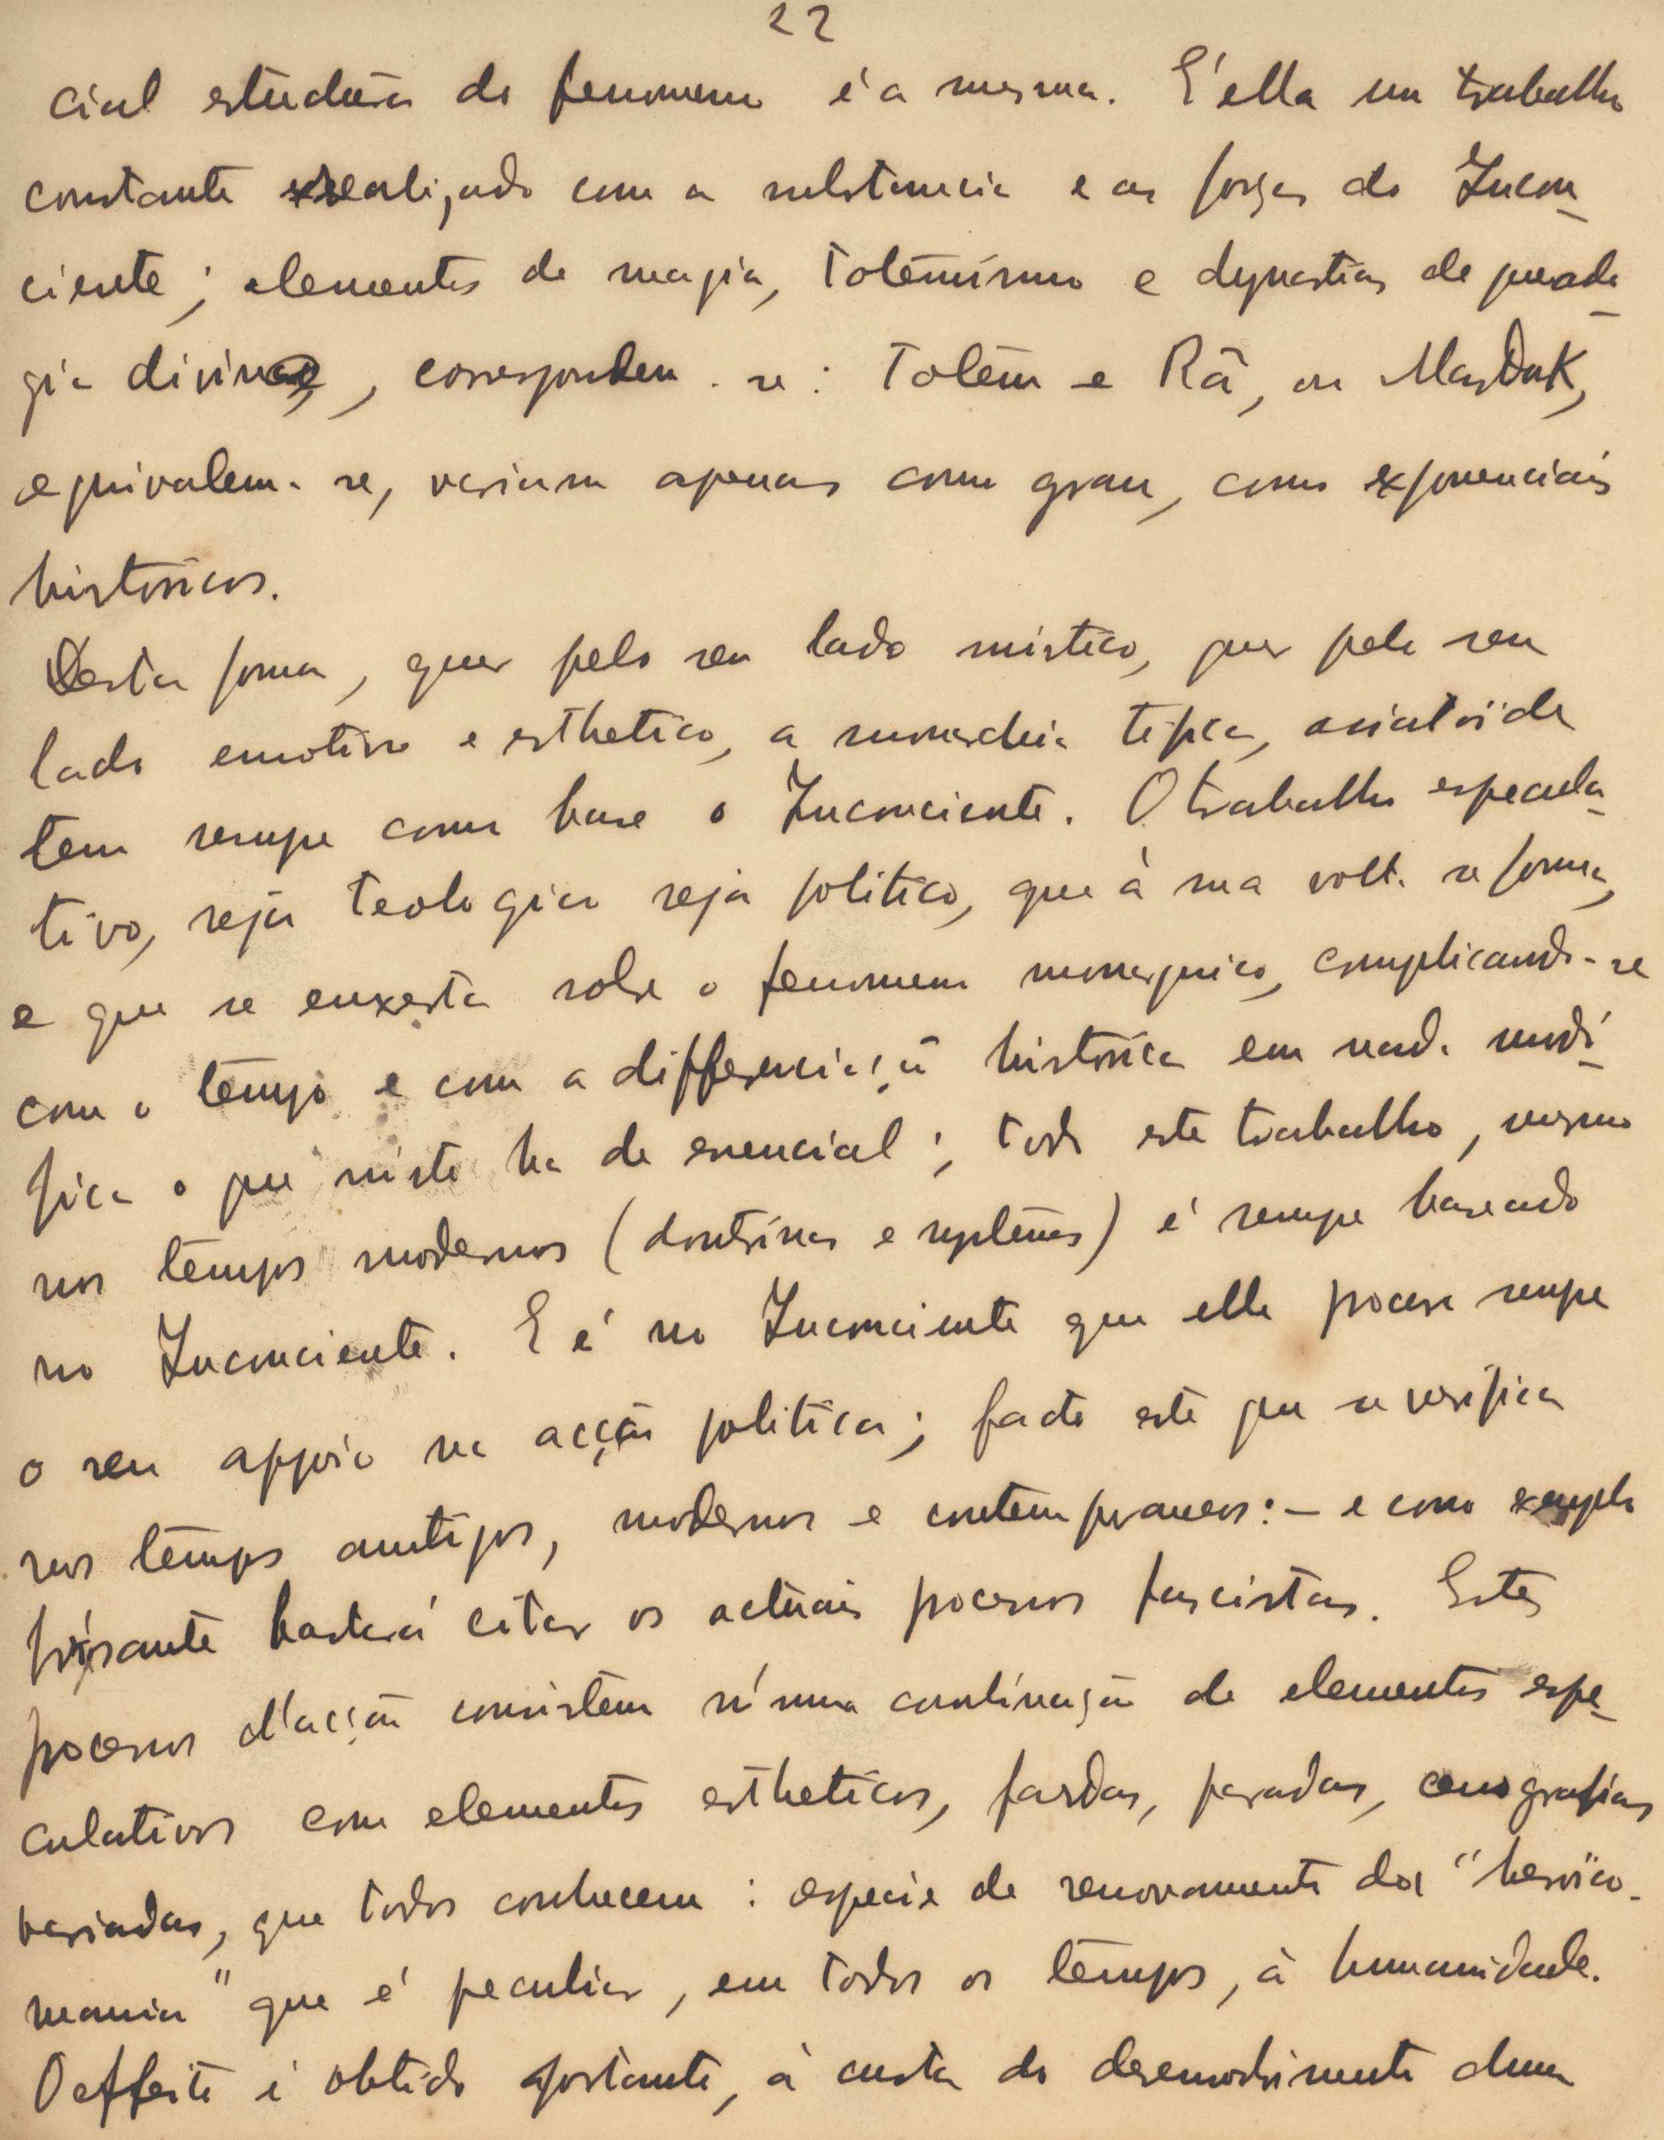 22
cial estructura do fenomeno é a mesma. E' ella um trabalho
constante realizado com a substancia e as forças do Incon-
ciente; elementos de magia, totémismo e dynastias de prosá-
gia divina, correspondem-se: Totém e Rã, ou MarDuk,
equivalem-se, variam apenas como grau, como exponenciáis
historicos.
Desta forma, quer pelo seu lado mistico, quer pelo seu
lado emotivo e esthetico, a monarchia tipica, asiatóide
tem sempre como base o Inconciente. O trabalho especula-
tivo, seja teologico seja politico, que à sua volta se forma,
e que se enxerta sobre o fenomeno monarquico, complicando-se
com o tempo e com a differenciação historica em nada modi-
fica o que n'isto ha de esencial; todo este trabalho, mesmo
nos tempos modernos (doutrinas e systemas) é sempre baseado
no Inconciente. E é no Inconciente que elle procura sempre
o seu appoio na acção politica; facto este que se verifica
nos tempos antigos, modernos e contemporaneos: - e como exemplo
frisante bastará citar os actuais procesos fascistas. Estes
procesos d'acção consistem n'uma combinação de elementos espe-
culativos com elementos estheticos, fardas, paradas, cenografias
variadas, que todos conhecem: especie de renovamento da "heroico-
mania" que é peculiar, em todos os tempos, à humanidade.
O effeito é obtido portanto, à custa do desenvolvimento duma